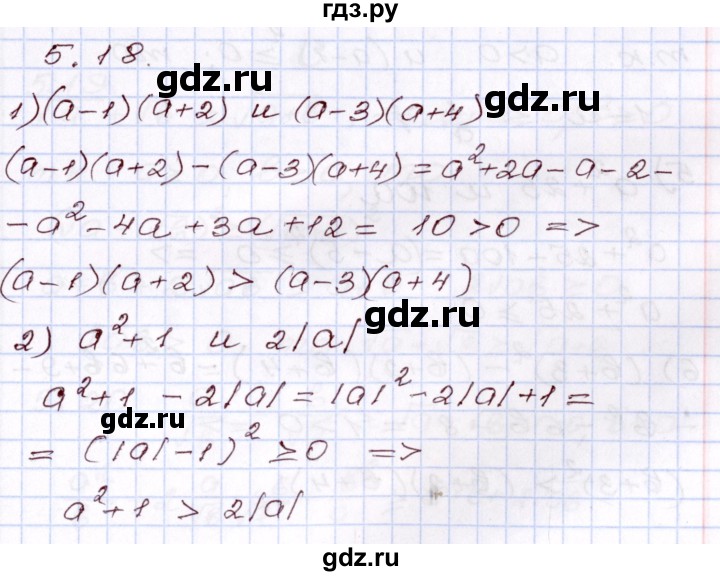 гдз.ру
5.18.
gdz.ru
1) (a-1)(a+2) и (a-3)(a+4)
gdz.ru
(a-1)(a+2)-(a-3)(a+4)=a²+2a-a-2-
-a²-4a+3a+12= 10>0 =>
(a-1)(a+2) > (a-3)(a+4)
gdz.ru
2) a²+1 и 2|a|
a²+1 - 2|a| = |a|²-2|a|+1 =
= (|a|-1)² ≥0 =>
gdz.ru
a²+1 > 2|a|
gdz.ru